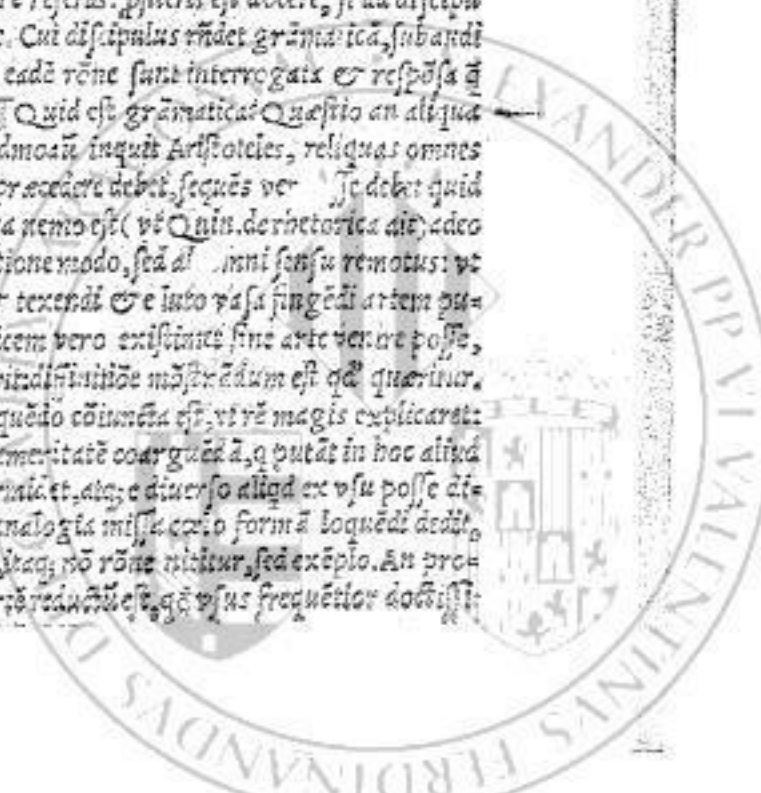 . Cui diſcipulus rñdet grāmaticā, ſubaudi
eadē rōne ſunt interrogata & reſpōſa q̄
Quid eſt grāmatica? Quæſtio an aliqua
inquit Ariſtoteles, reliquas omnes
præcedere debet, ſequēs ver debet quid
a nemo eſt (vt Quin. de rhetorica ait) adeo
tione modo, ſed a mni ſenſu remotus: vt
r texendi & e luto vaſa fingēdi artem pu=
icem vero exiſtimet ſine arte venire poſſe,
diffinitiōe mōſtrādum eſt qd' quæritur.
quēdo cōiuncta eſt, vt rē magis explicaret:
emeritatē coarguēdā, q putāt in hoc aliud
atq; e diuerſo aliqd ex vſu poſſe di=
analogia miſſa cœlo formā loquēdi dedit,
itaq; nō rōne nititur, ſed exēplo. An pro=
eſt, vſus frequētior doctiſſi=
EXANDER PP VI VALENTINVS FERDINANDVS